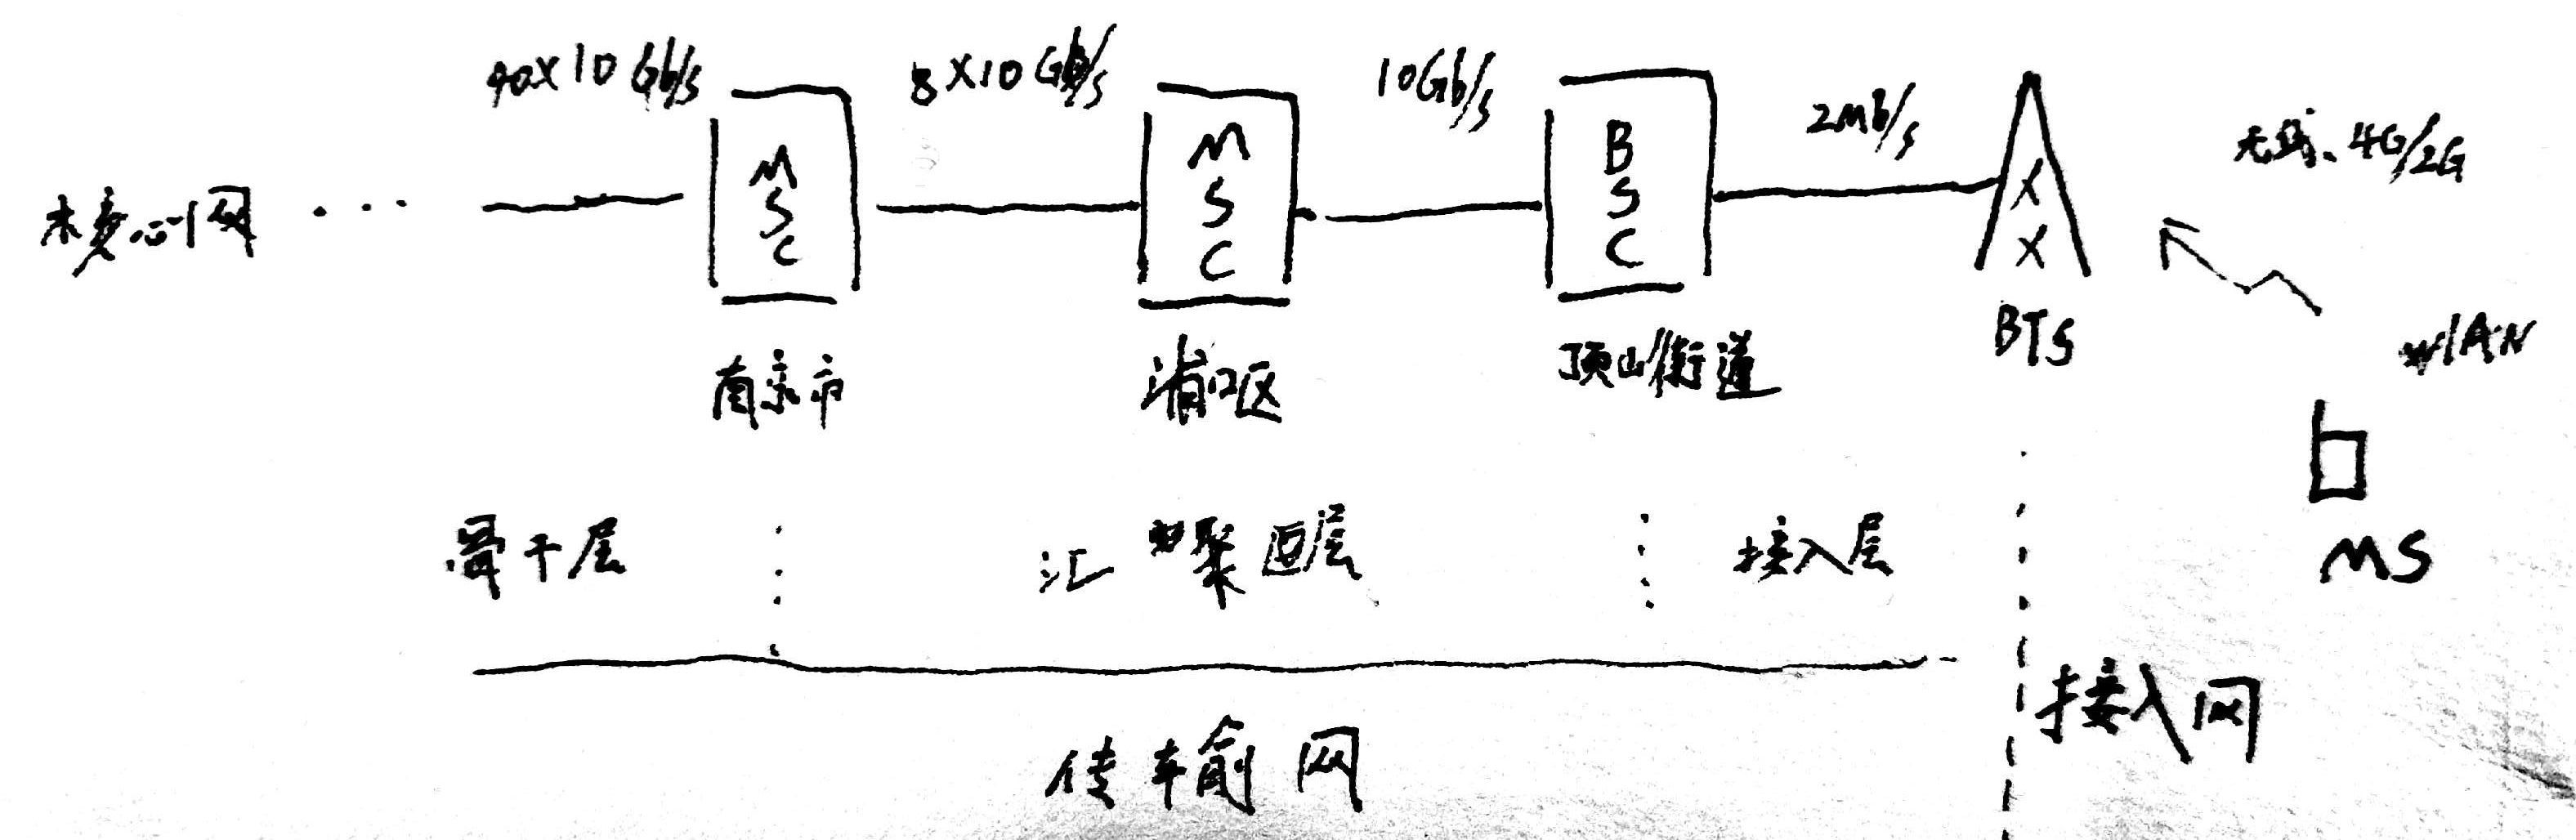 40×10Gb/s
8×10Gb/s
10Gb/s
2Mb/s
无线、4G/2G
核心网 ···
MSC
MSC
BSC
BTS
WLAN
南京市
浦口区
顶山街道
MS
骨干层
汇聚层
接入层
接入网
传输网